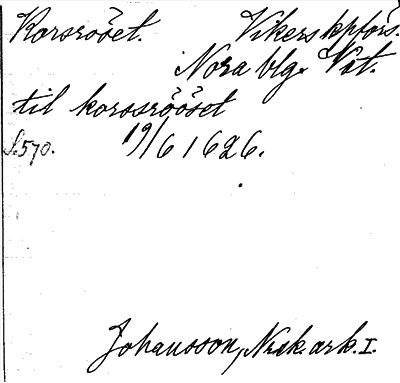 Korsrööet. Vikers kpförs.
Nora blg. Vstm.
til korssrööset
S.570. 19/6 1626.
Johansson, Nrk. ark. I.